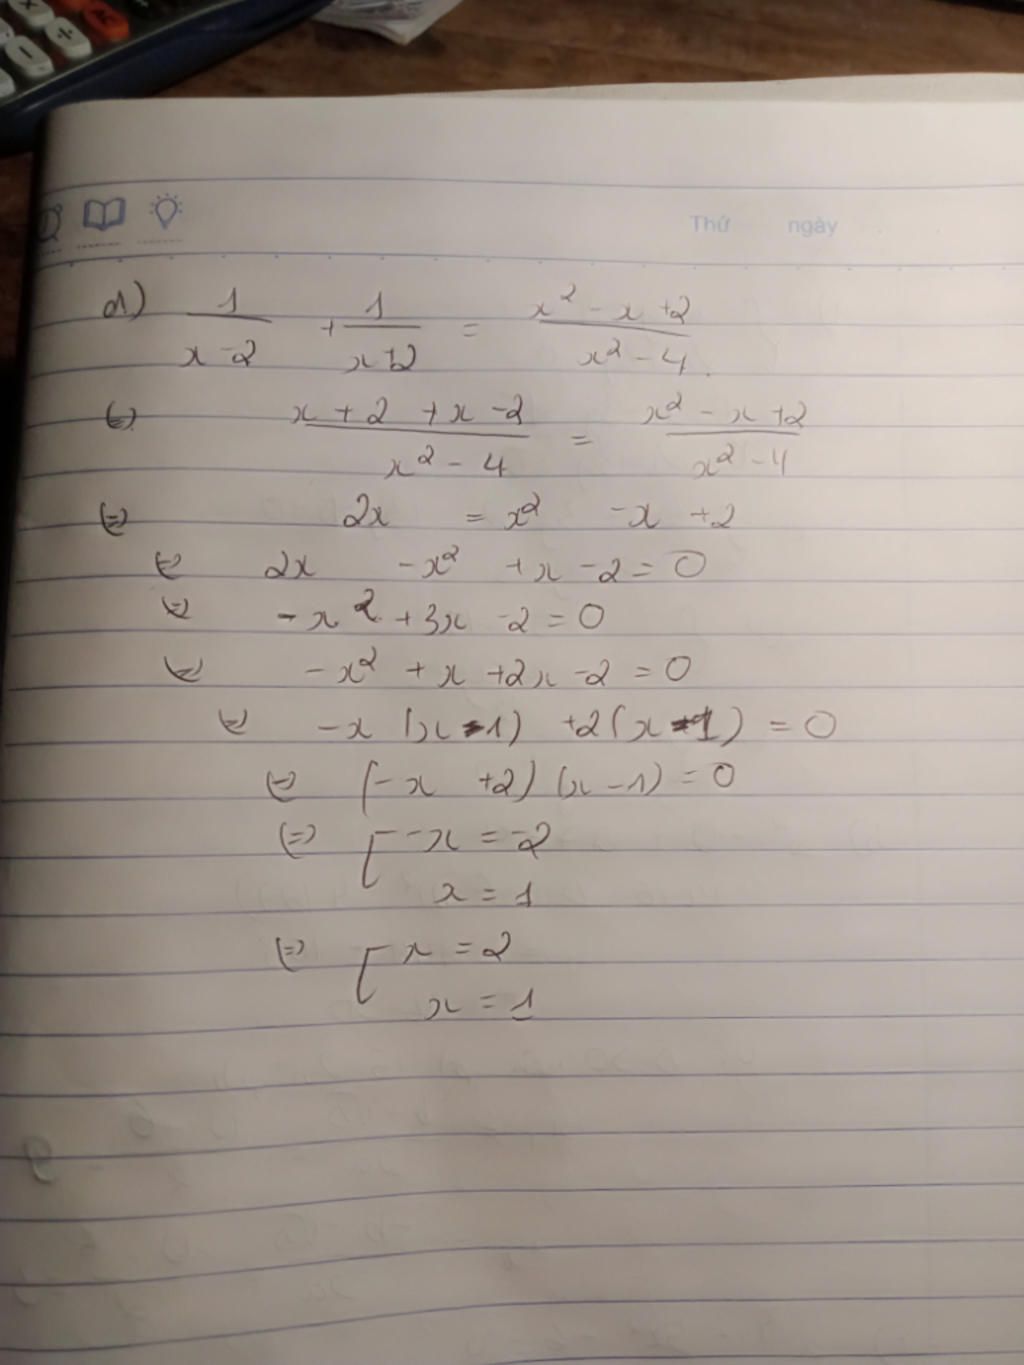 Thứ ngày
d) 1/(x-2) + 1/(x+2) = (x² - x + 2)/(x² - 4)
(=) (x + 2 + x - 2)/(x² - 4) = (x² - x + 2)/(x² - 4)
(=) 2x = x² - x + 2
(=) 2x - x² + x - 2 = 0
(=) - x² + 3x - 2 = 0
(=) - x² + x + 2x - 2 = 0
(=) - x (x - 1) + 2(x - 1) = 0
(=) (- x + 2) (x - 1) = 0
(=) [ - x = -2
x = 1
(=) [ x = 2
x = 1